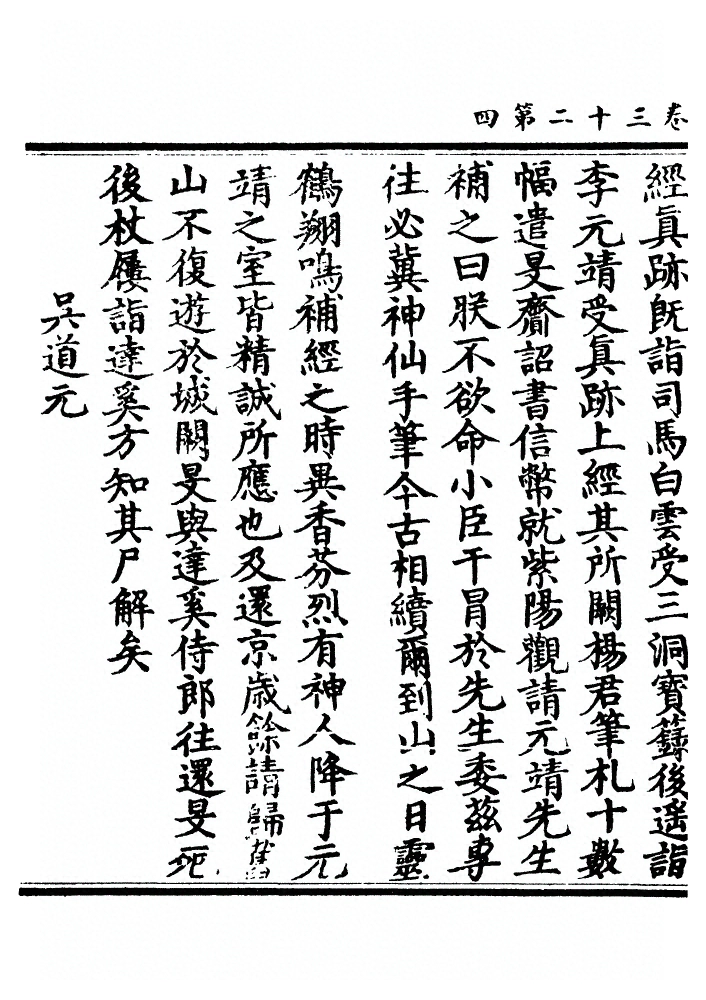 卷三十二第四
經眞跡既詣司馬白雲受三洞寶籙後遥詣
李元靖受眞跡上經其所闕楊君筆札十數
幅遣旻齎詔書信幣就紫陽觀請元靖先生
補之曰朕不欲命小臣干冒於先生委茲專
往必冀神仙手筆今古相續爾到山之日靈
鶴翔鳴補經之時異香芬烈有神人降于元
靖之室皆精誠所應也及還京歳餘請歸舊
山不復遊於城闕旻與達奚侍郎往還旻死
後杖屨詣達奚方知其尸解矣
吳道元